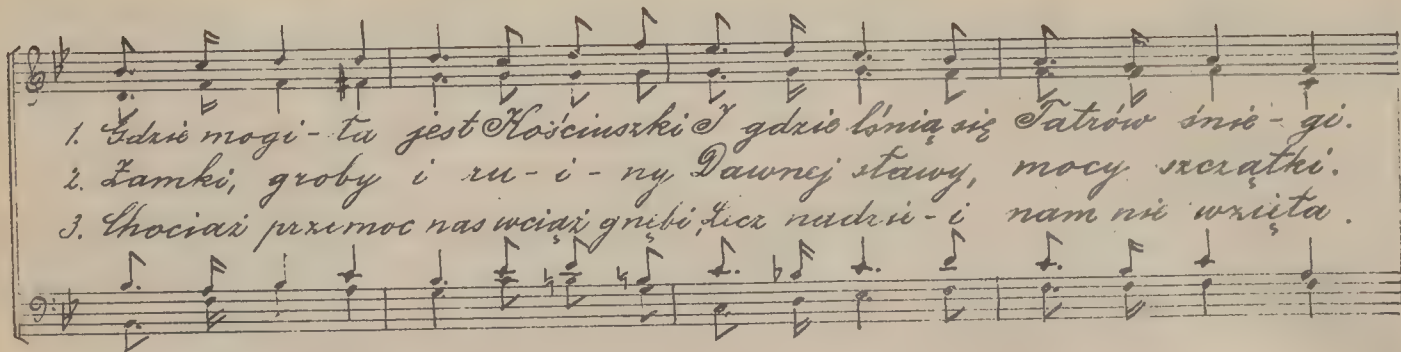 1. Gdzie mogi - ła jest Kościuszki I gdzie lśnią się Tatrów śnie - gi.
2. Zamki, groby i ru - i - ny Dawnej sławy, mocy szczątki.
3. Chociaż przemoc nas wciąż gnębi, Lecz nadzie - i nam nie wzięła.